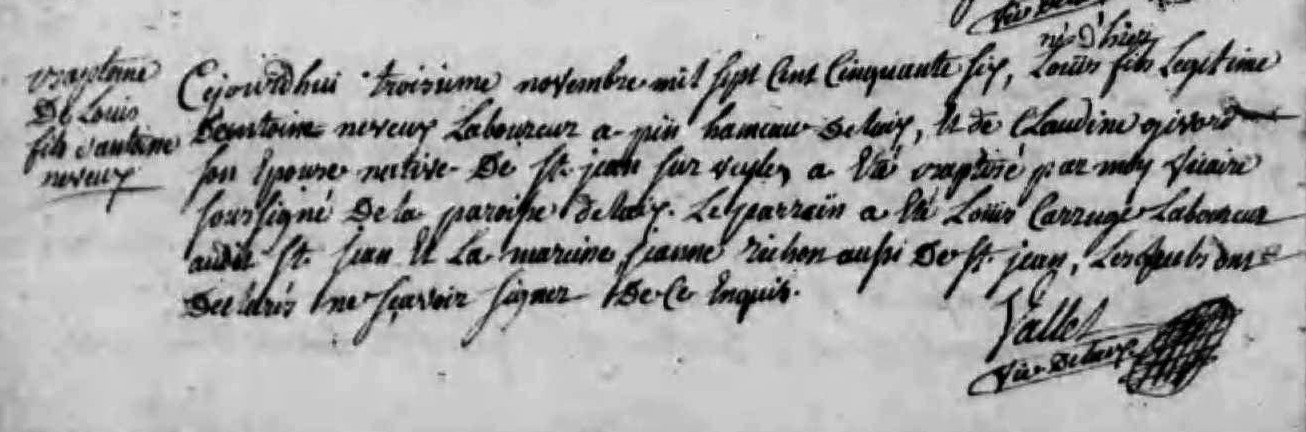 Baptême
De Louis
fils d'antoine
neveux
né d'hier
Cejourdhui troisieme novembre mil sept Cent Cinquante six, Loüis fils Legitime
D'antoine neveux Laboureur a pin hameau de laiz, Et de Claudine givord
son Epouse native De St. jean sur veyle, a Eté Baptisé par moy vicaire
soussigné De la paroisse de laiz. Le parrain a Eté Loüis Carruge Laboureur
audit St. jean Et La maraine jeanne richon aussi De St. jean, Lesquels ont
Declarés ne sçavoir signer De Ce Enquis.
Vallet
Vic. De laiz